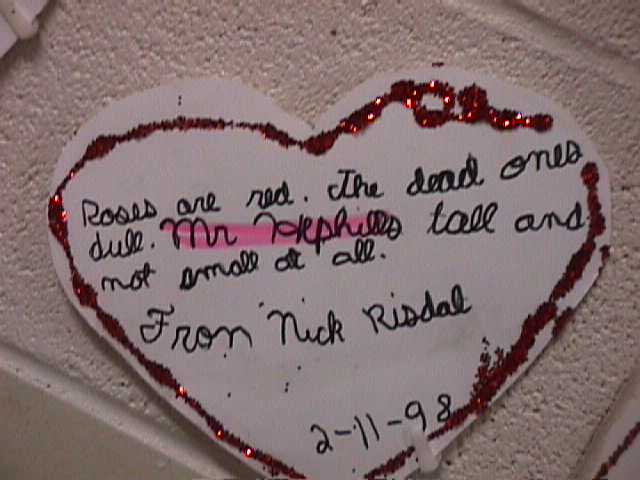 Roses are red. The dead ones
dull. Mr Hephills tall and
not small at all.
Fron Nick Risdal
2-11-98